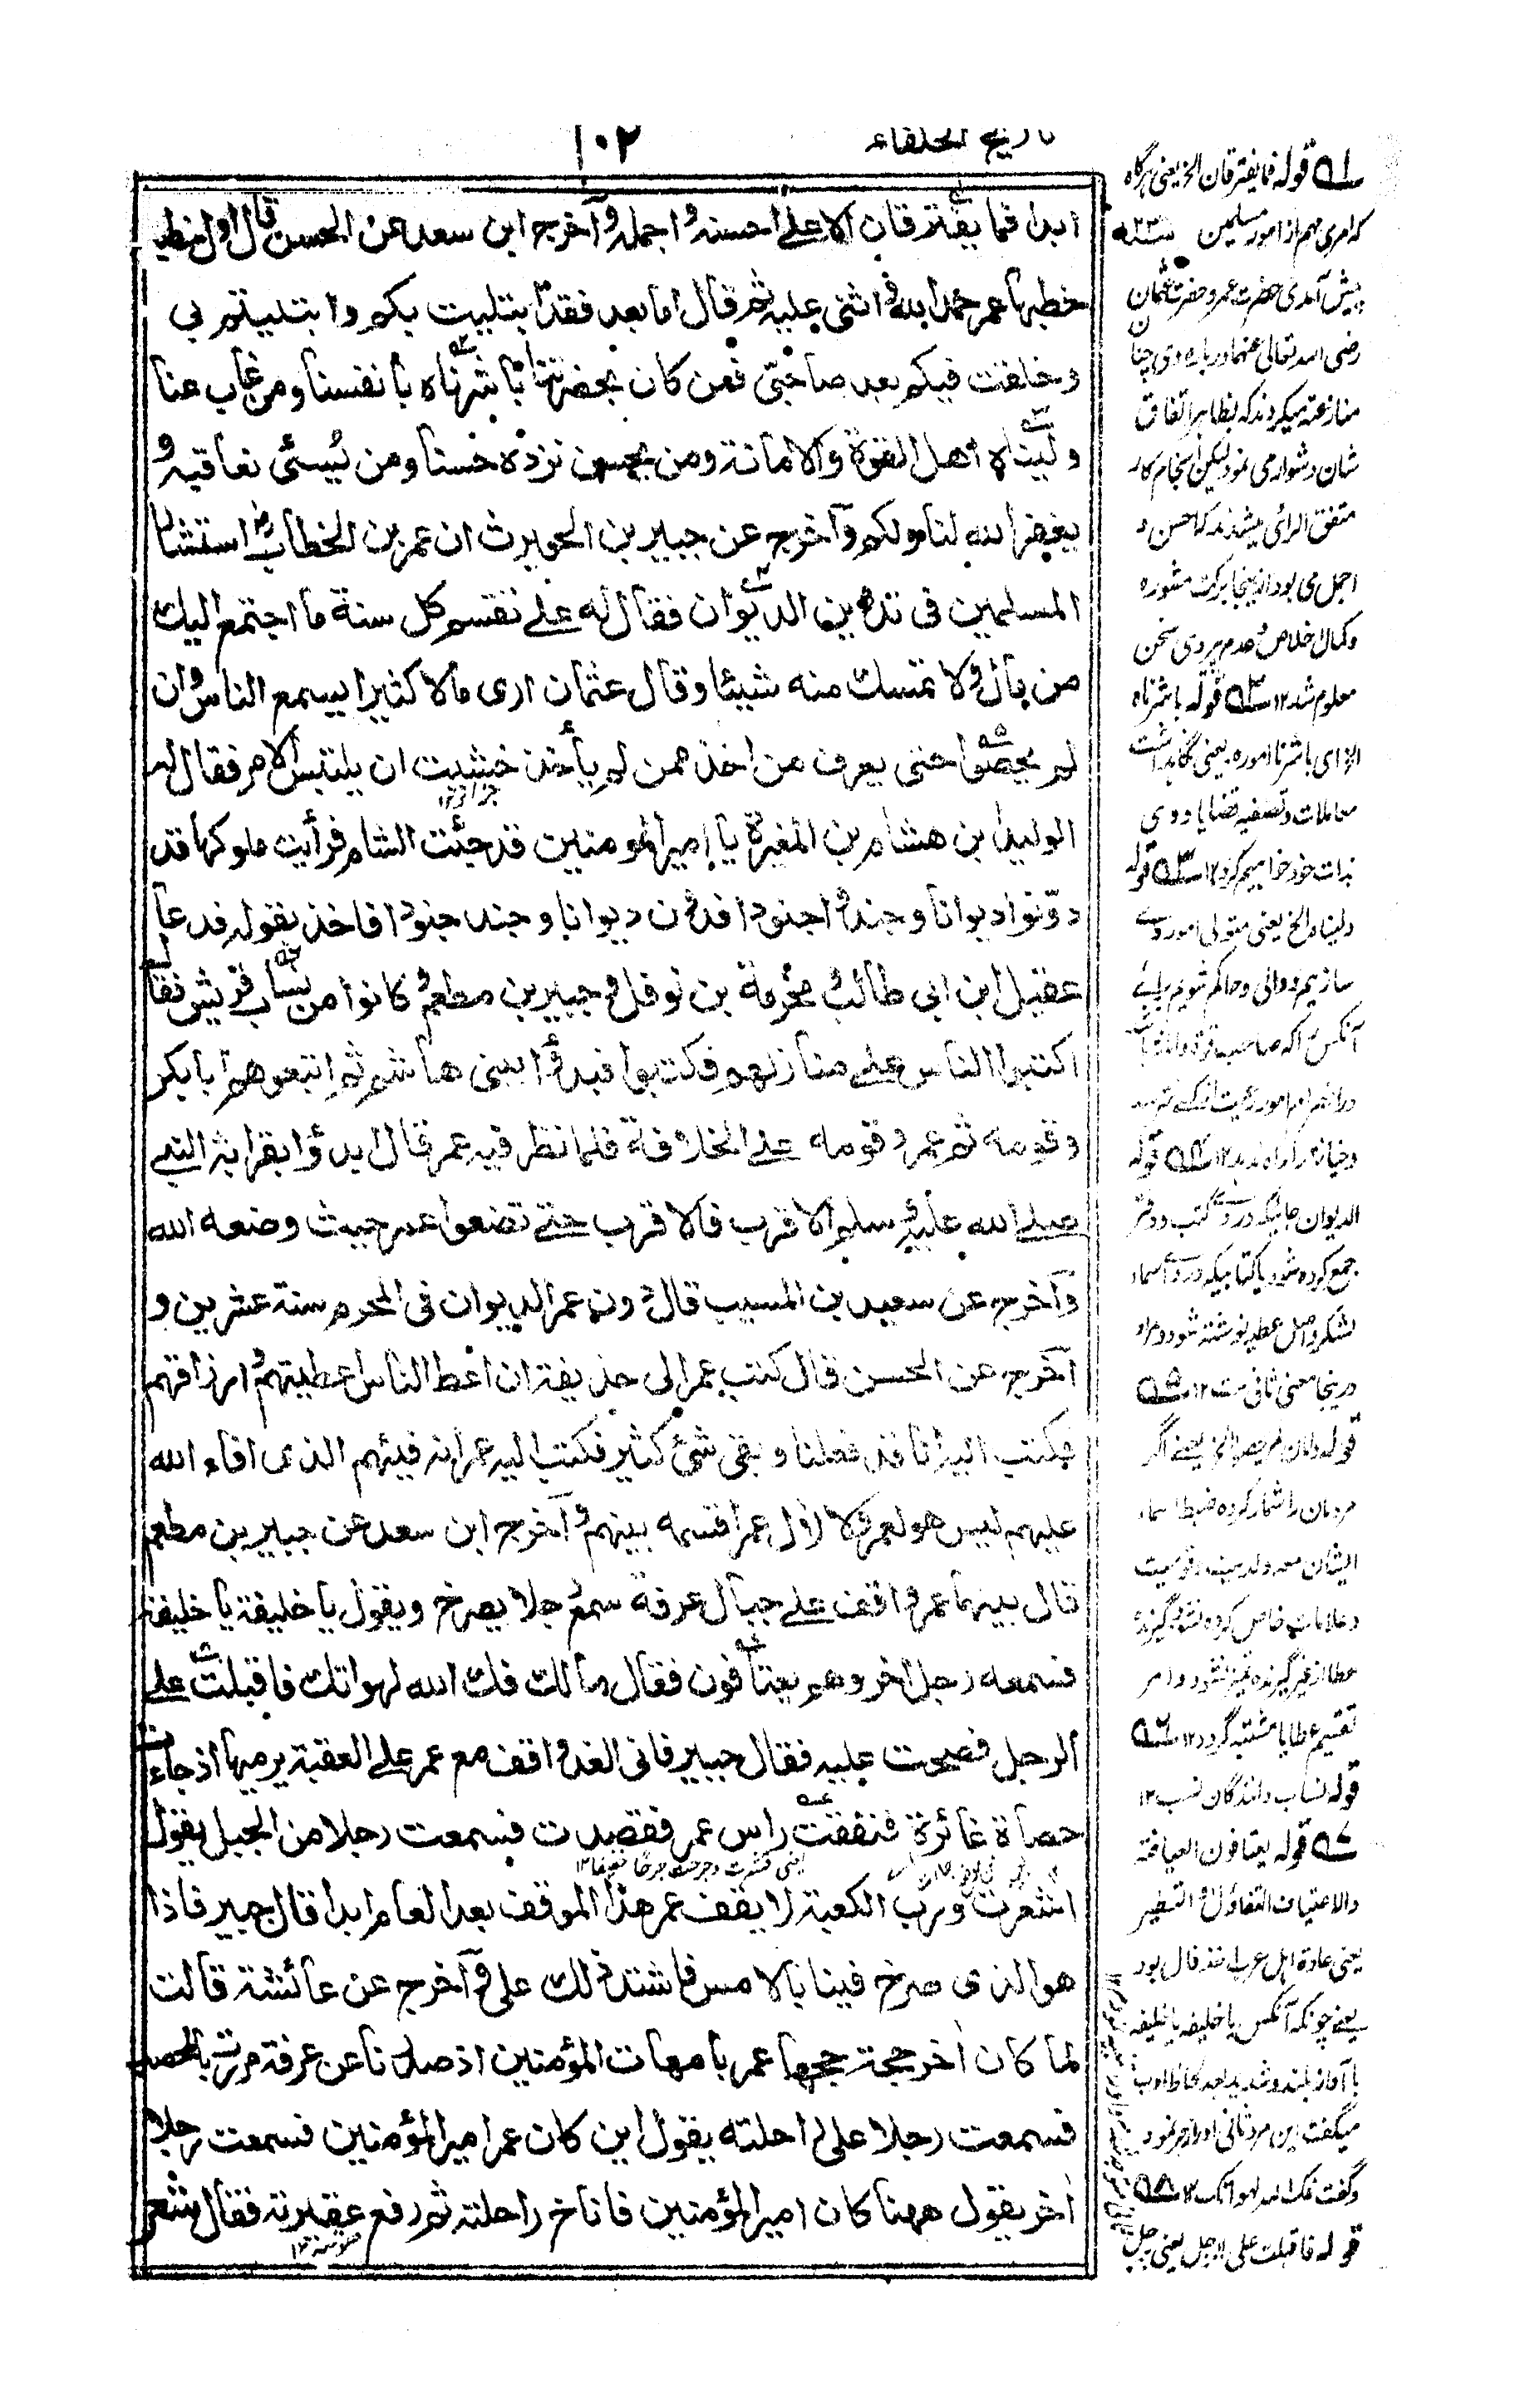 تاريخ الخلفاء
١٠٢
ابدا فما يفترقان الا علے احسنه واجمله وآخرج ابن سعد عن الحسن قال اول خطبة
خطبها عمر حمد الله واثنى عليه ثم قال اما بعد فقد ابتليت بكم وابتليتم بي
وخلفت فيكم بعد صاحبيّ فمن كان بحضرتنا باشرناه بأنفسنا ومن غاب عنا
وليناه اهل القوة والامانة ومن يحسن نزده حسنا ومن يسئ نعاقبه و
يغفر الله لنا ولكم وآخرج عن جبير بن الحويرث ان عمر بن الخطاب رض استشار
المسلمين فى تدوين الديوان فقال له علے نقسم كل سنة ما اجتمع اليك
من مال ولا تمسك منه شيئا وقال عثمان ارى مالا كثيرا يسع الناس وان
لم يحصوا حتى يعرف من اخذ ممن لم يأخذ خشيت ان يلتبس الامر فقال له
الوليد بن هشام بن المغيرة يا امير المومنين قد جئت الشام فرأيت ملوكها قد
دوّنوا ديوانا وجندوا جنودا فدون ديوانا وجند جنودا فاخذ بقوله فدعا
عقيل ابن ابى طالب ومخرمة بن نوفل وجبير بن مطعم وكانوا من نساب قريش فقال
اكتبوا الناس علے منازلهم فكتبوا فبدؤا ببنى هاشم ثم اتبعوهم ابا بكر
وقومه ثم عمر وقومه علے الخلافة فلما نظر فيه عمر قال ابدؤا بقرابة النبے
صلے الله عليه وسلم الاقرب فالاقرب حتے تضعوا عمر حيث وضعه الله
وآخرج عن سعيد بن المسيب قال دون عمر الديوان فى المحرم سنة عشرين و
آخرج عن الحسن قال كتب عمر الى حذيفة ان اعط الناس اعطيتهم وارزاقهم
فكتب اليه انا قد فعلنا وبقى شئ كثير فكتب اليه عمر انه فيئهم الذى افاء الله
عليهم ليس هو لعمر ولا لآل عمر اقسمه بينهم وآخرج ابن سعد عن جبير بن مطعم
قال بينما عمر واقف علے جبال عرفة سمع رجلا يصرخ ويقول يا خليفة يا خليفة
فسمعه رجل اخر وهم يعتافون فقال مالك فك الله لهواتك فاقبلت علے
الرجل فصحت عليه فقال جبير فانى الغد واقف مع عمر علے العقبة يرميها اذ جاءت
حصاة غائرة فنقفت راس عمر فقصدت فسمعت رجلا من الجبل يقول
اشعرت ورب الكعبة لا يقف عمر هذا الموقف بعد العام ابدا قال جبير فاذا
هو الذى صرخ فينا بالامس فاشتد ذلك على وآخرج عن عائشة قالت
لما كان اخر حجة حجها عمر بامهات المؤمنين اذ صدرنا عن عرفة مررت بالمحصب
فسمعت رجلا على راحلته يقول اين كان عمر امير المؤمنين فسمعت رجلا
اخر يقول ههنا كان امير المؤمنين فاناخ راحلته ثم رفع عقيرته فقال شعر
٥١ قوله فما يفترقان الخ يعنى هرگاه
كه امرى مهم از امور مسلمين
پيش آمدى حضرت عمر و حضرت عثمان
رضى الله تعالى عنهما درباره وى چنان
منازعة ميكردند كه بظاهر اتفاق
شان دشوار مى نمود ليكن انجام كار
متفق الرائى ميشدند كه احسن و
اجمل مى بود از ينجا بركت مشوره
وكمال اخلاص وعدم پيروى سخن
معلوم شد ١٢ ٥٢ قوله باشرناه
الخ اى باشرنا اموره يعنى نگاهداشت
معاملات وتصفيه قضايا وى
بذات خود خواهيم كرد ١٢ ٥٣ قوله
وليناه الخ يعنى متولى امور وے
سازيم ووالى وحاكم شويم براے
آنكس را كه صاحب قوة وامانة
وخيانة را راه ندهد ١٢ ٥٤ قوله
الديوان جائيكه در وے كتب ودفتر
جمع كرده شود يا كتابيكه در وے اسماء
لشكر واهل عطيه نوشته شود ومراد
درينجا معنى ثانى ست ١٢ ٥٥
قوله وان لم يحصوا الخ يعنے اگر
مردمان را شمار كرده ضبط اسماء
وعلامات خاص كرده نشود گيرنده
عطا از غير گيرنده متميز نشود وامر
تقسيم عطايا مشتبه گردد ١٢ ٥٦
قوله نساب دانندگان نسب ١٢
٥٧ قوله يعتافون العيافة
والاعتياف التفاؤل والتطير
يعنى عادة اهل عرب اخذ فال بود
يعنے چونكه آنكس يا خليفه يا خليفه
با آواز بلند وشديد بعد لحاظ ادب
ميگفت اين مرد ثانى او را زجر نمود
وگفت فك الله لهواتك ١٢ ٥٨
قوله فاقبلت على الرجل يعنى رجل